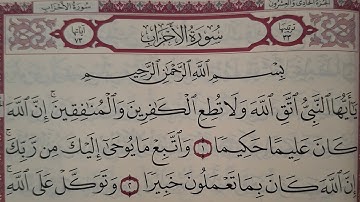 الجزء الحادي والعشرون
سورة الأحزاب
ترتيبها ٣٣
سُورَةُ الأَحْزَابِ
آياتها ٧٣
بِسْمِ ٱللَّهِ ٱلرَّحْمَٰنِ ٱلرَّحِيمِ
يَٰٓأَيُّهَا ٱلنَّبِىُّ ٱتَّقِ ٱللَّهَ وَلَا تُطِعِ ٱلْكَٰفِرِينَ وَٱلْمُنَٰفِقِينَۗ إِنَّ ٱللَّهَ
كَانَ عَلِيمًا حَكِيمًا ١ وَٱتَّبِعْ مَا يُوحَىٰٓ إِلَيْكَ مِن رَّبِّكَۚ
إِنَّ ٱللَّهَ كَانَ بِمَا تَعْمَلُونَ خَبِيرًا ٢ وَتَوَكَّلْ عَلَى ٱللَّهِ